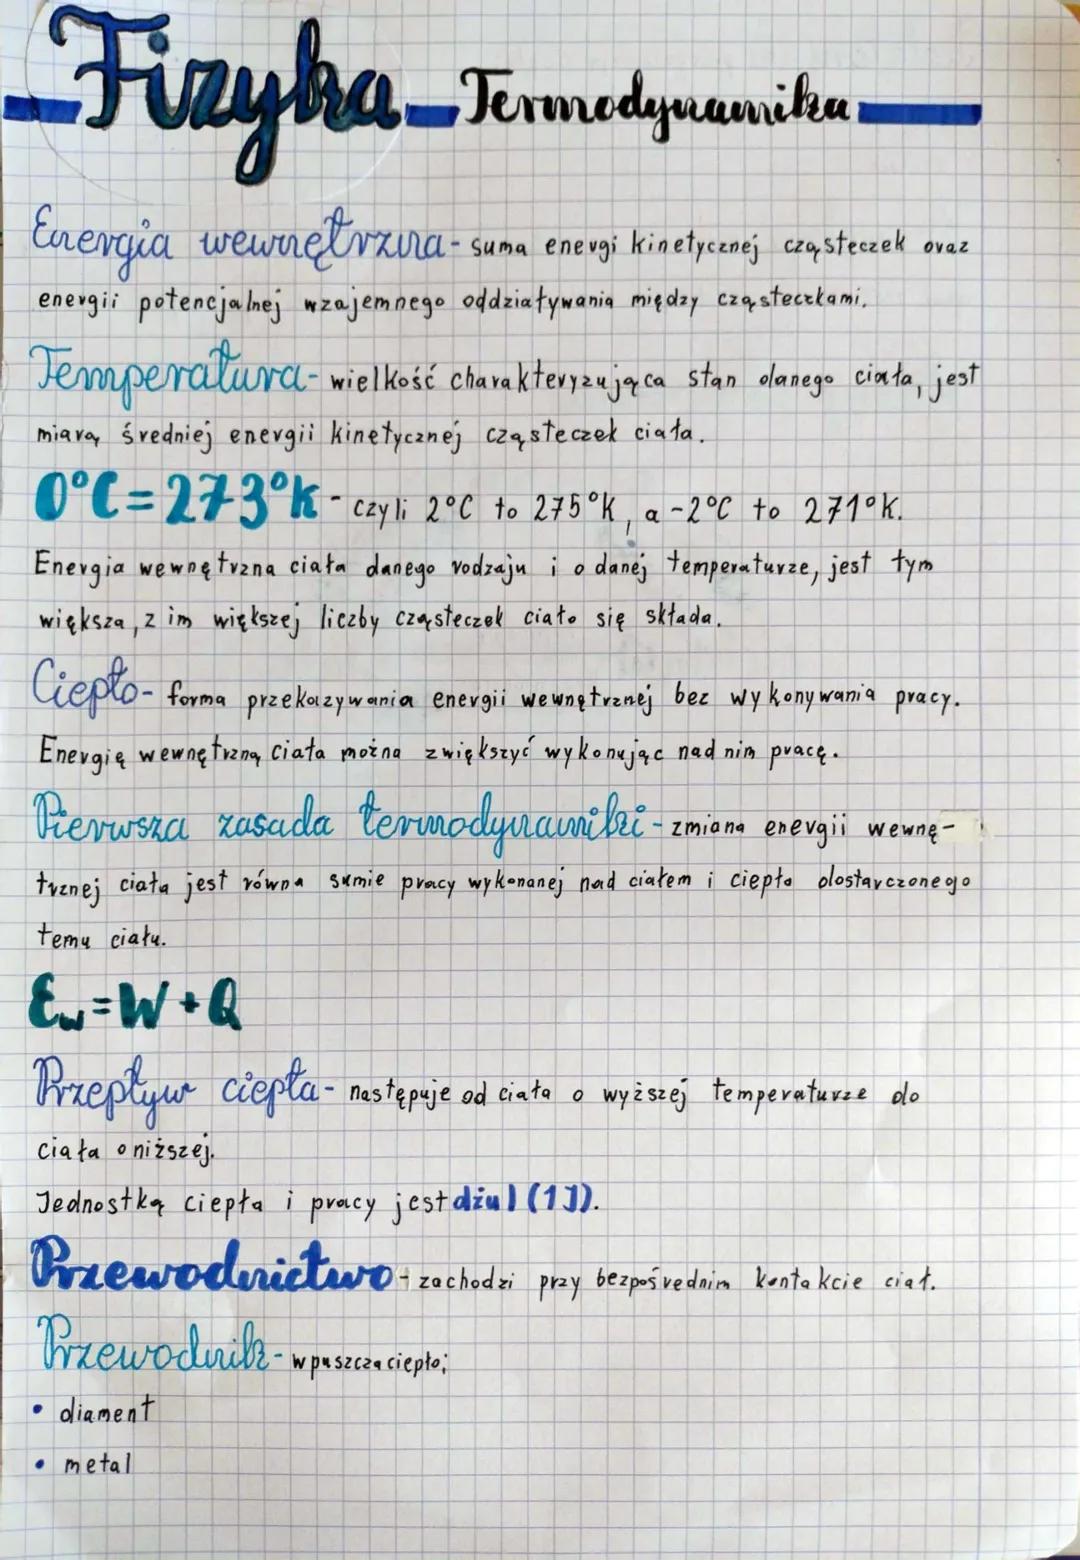 Fizyka - Termodynamika
Energia wewnętrzna - suma energi kinetycznej cząsteczek oraz
energii potencjalnej wzajemnego oddziaływania między cząsteczkami.
Temperatura - wielkość charakteryzująca stan danego ciała, jest
miarą średniej energii kinetycznej cząsteczek ciała.
0°C = 273°K - czyli 2°C to 275°K, a -2°C to 271°K.
Energia wewnętrzna ciała danego rodzaju i o danej temperaturze, jest tym
większa, z im większej liczby cząsteczek ciało się składa.
Ciepło - forma przekazywania energii wewnętrznej bez wykonywania pracy.
Energię wewnętrzną ciała można zwiększyć wykonując nad nim pracę.
Pierwsza zasada termodynamiki - zmiana energii wewnę-
trznej ciała jest równa sumie pracy wykonanej nad ciałem i ciepła dostarczonego
temu ciału.
Ew = W + Q
Przepływ ciepła - następuje od ciała o wyższej temperaturze do
ciała o niższej.
Jednostką ciepła i pracy jest dżul (1J).
Przewodnictwo - zachodzi przy bezpośrednim kontakcie ciał.
Przewodnik - wpuszcza ciepło;
• diament
• metal